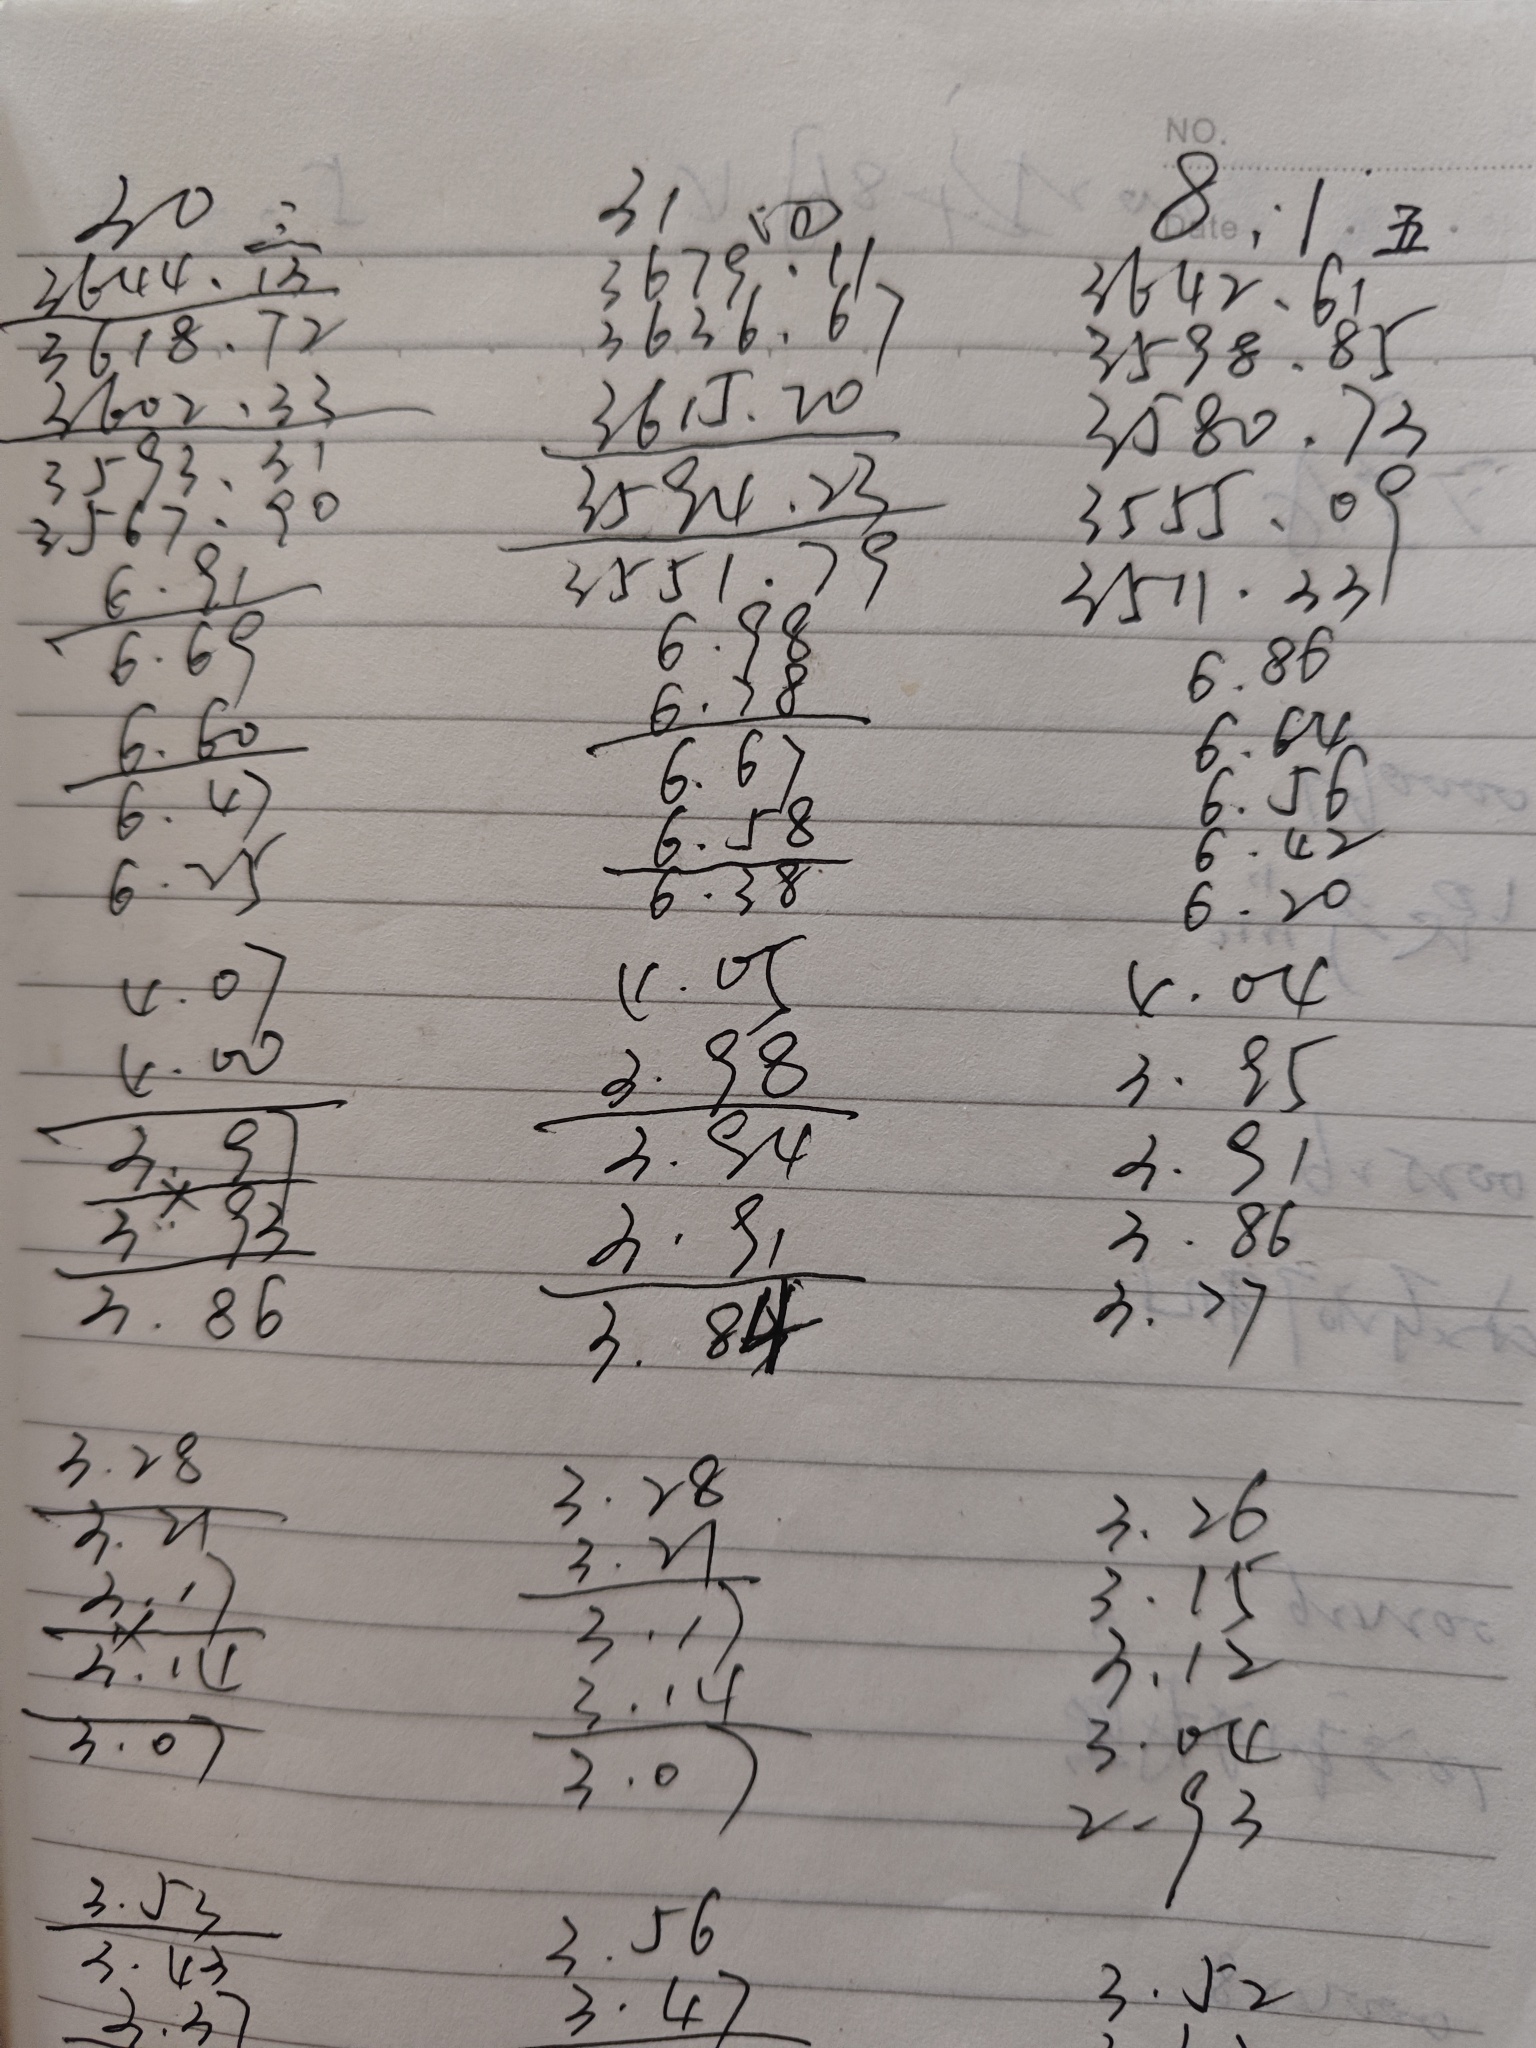 NO.
Date
30 三
3644.13
3618.72
3602.33
3593.31
3567.90
6.91
6.69
6.60
6.47
6.25
4.07
4.00
3.97
3.93
3.86
3.28
3.21
3.17
3.14
3.07
3.53
3.43
3.37
31 四
3679.11
3636.67
3615.20
3594.23
3551.79
6.98
6.78
6.67
6.58
6.38
4.05
3.98
3.94
3.91
3.84
3.28
3.21
3.17
3.14
3.07
3.56
3.47
8.1.五
3642.61
3598.85
3580.73
3555.09
3511.33
6.86
6.64
6.56
6.42
6.20
4.04
3.95
3.91
3.86
3.77
3.26
3.15
3.12
3.04
2.93
3.52